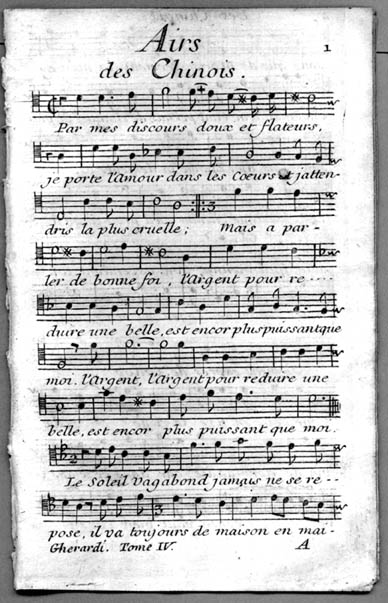 Airs
1
des Chinois.
Par mes discours doux et flateurs,
je porte l'amour dans les Coeurs et j'atten-
dris la plus cruelle; Mais a par-
ler de bonne foi, l'Argent pour re ----
duire une belle, est encor plus puissant que
moi. l'Argent, l'Argent pour reduire une
belle, est encor plus puissant que moi.
Le Soleil vagabond jamais ne se re --
pose, il va toujours de maison en mai-
Gherardi. Tome IV. A